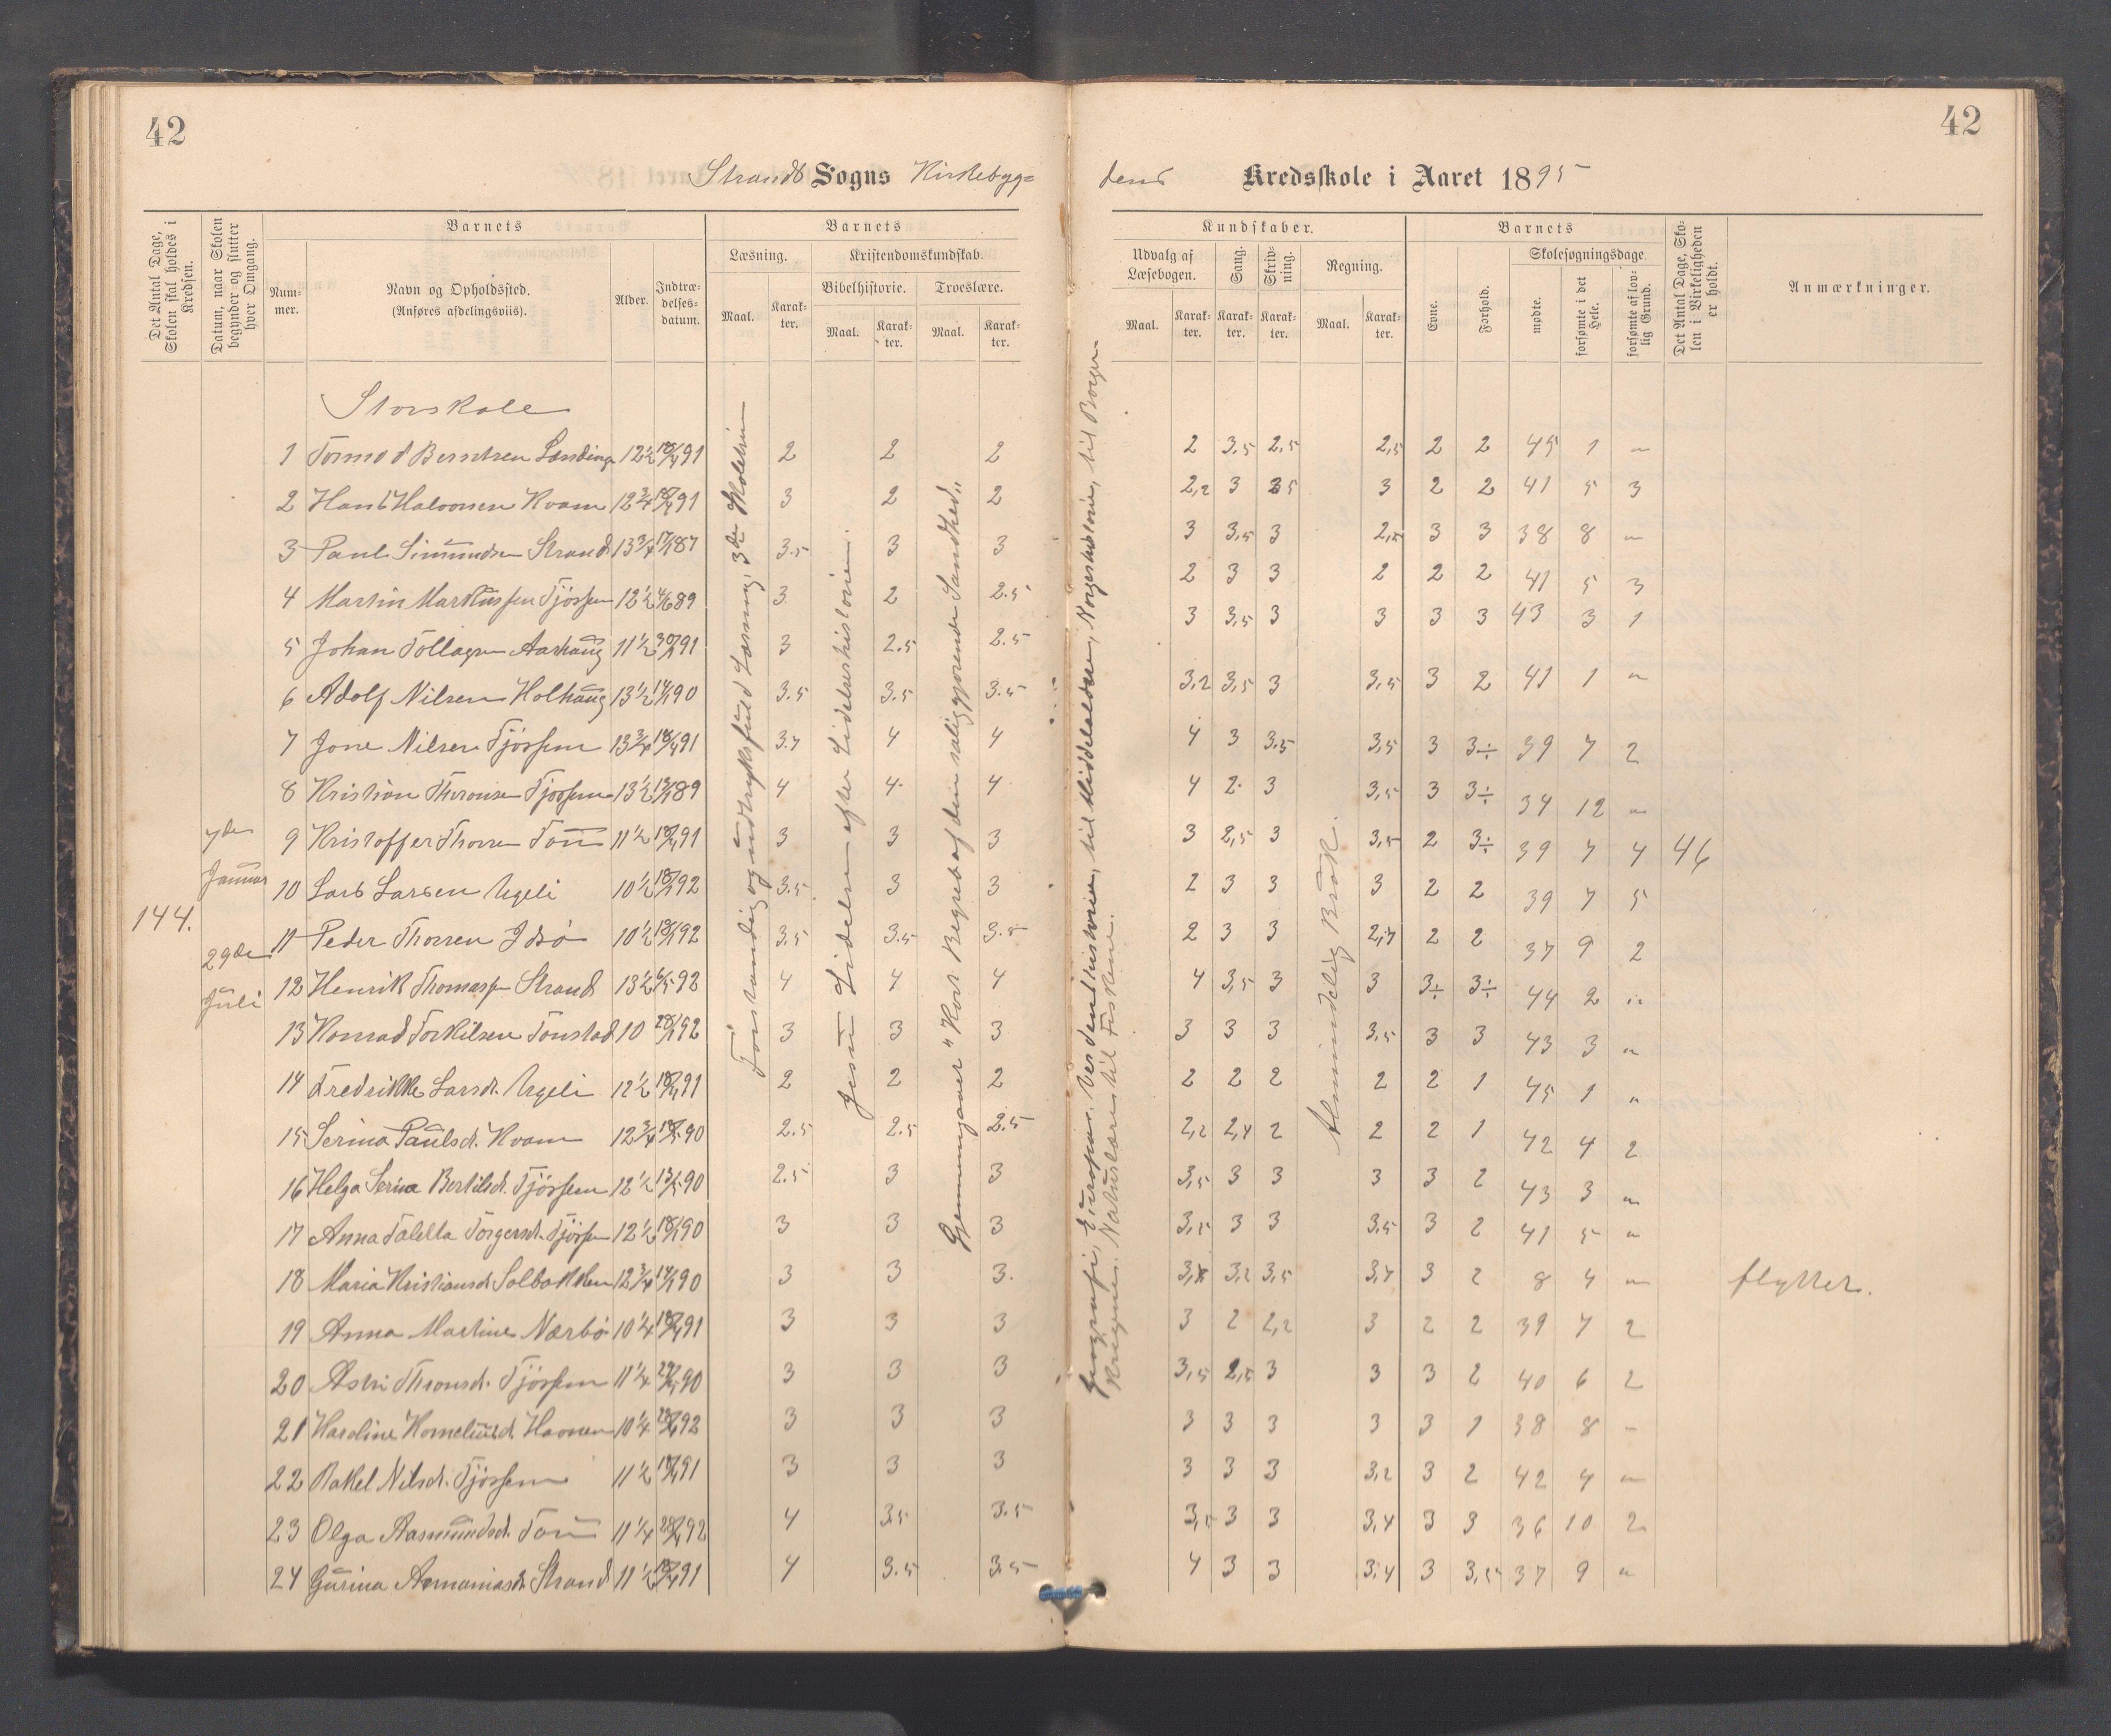 42
42
Strands Sogns Kirkebyg=
dens Kredsskole i Aaret 1895
Det Antal Dage, Skolen skal holdes i Kredsen.
Datum, naar Skolen begynder og slutter hver Omgang.
Barnets
Num-mer.
Navn og Opholdssted.
(Anføres afdelingsviis).
Alder.
Indtræ-delses-datum.
Barnets
Læsning.
Maal.
Karak-ter.
Kristendomskundskab.
Bibelhistorie.
Maal.
Karak-ter.
Troeslære.
Maal.
Karak-ter.
Kundskaber.
Udvalg af Læsebogen.
Maal.
Karak-ter.
Sang.
Karak-ter.
Skriv-ning.
Karak-ter.
Regning.
Maal.
Karak-ter.
Barnets
Evne.
Forhold.
Skolesøgningsdage
mødte.
forsømte i det Hele.
forsømte af lov-lig Grund.
Det Antal Dage, Sko-len i Virkeligheden er holdt.
Anmærkninger.
Storskole
144.
7de Januar
29de Juli
Forstandig og udtryksfuld Læsning, 3die Skoletrin
Jesu Lidelse efter Lidelseshistorien.
Gjennemgaaet "Kort Begreb af den saliggjørende Sandhed"
Geografi, Europa. Verdenshistorien, til Middelalderen, Norgeshistorie, til Borger-
krigene. Naturlære til Fiskene.
Almindelig Brøk.
46
1 Tormod Berntsen Landinge 12½ 18/4 91 2 2 2 2 3,5 2,5 2,5 2 2 45 1 "
2 Hans Halvorsen Kvam 12¾ 18/4 91 3 2 2 2,2 3 3,5 3 2 2 41 5 3
3 Paul Simundsen Strand 13¾ 17/1 87 3.5 3 3 3 3,5 3 2,5 3 3 38 8 "
4 Martin Markussen Tjössem 12½ 4/6 89 3 2 2.5 2 3 3 2 2 2 41 5 3
5 Johan Tollagsen Aarhaug 11½ 30/1 91 3 2.5 2.5 3 3,5 3 3 3 3 43 3 1
6 Adolf Nilsen Holhaug 13½ 14/1 90 3.5 3.5 3.5 3,2 3,5 3 3,5 3 2 41 1 "
7 Jone Nilsen Tjössem 13¾ 18/4 91 3.7 4 4 4 3 3,5 3,5 3 3÷ 39 7 2
8 Kristian Thorsen Tjössem 13½ 17/1 89 4 4 4 4 2 3 3,5 3 3÷ 34 12 "
9 Kristoffer Thorsen Tou 11½ 18/4 91 3 3 3 3 2,5 3 3,5 2 3÷ 39 7 4
10 Lars Larsen Ugeli 10½ 18/1 92 3.5 3 3 2 3 3 3 2 2 39 7 5
11 Peder Thorsen Idsö 10½ 18/1 92 3.5 3.5 3.5 2 3 3 2,7 2 2 37 9 2
12 Henrik Thomassen Strand 13½ 6/5 92 4 4 4 4 3,5 3 3 3÷ 3÷ 44 2 "
13 Konrad Torkilsen Tonstad 10 28/1 92 3 3 3 3 3 3 3,5 3 3 43 3 "
14 Fredrikke Larsdt. Ugeli 12½ 18/4 91 2 2 2 2 2 2 2 2 1 45 1 "
15 Serina Paulsdt. Kvam 12¾ 90 2.5 2.5 2.5 2,2 2,4 2 2 2 1 42 4 2
16 Helga Serina Bertilsdt. Tjössem 12½ 13/5 90 2.5 3 3 3,5 3 3 3 3 2 43 3 "
17 Anna Taletta Torgersdt. Tjössem 12½ 18/1 90 3 3 3 3,5 3 3 3,5 3 2 41 5 "
18 Maria Kristiansdt. Solbakken 12¾ 14/1 90 3 3 3. 3,2 3,5 3,7 3 2 8 4 " flytter.
19 Anna Martine Nærbö 10¼ 18/4 91 3 3 3 3 2 2,2 3 2 2 39 7 2
20 Astri Thronsdt. Tjössem 11¼ 29/5 90 3 3 3 3,5 2,5 3 3 3 2 40 6 2
21 Karoline Korneliusdt. Haavnen 10¼ 92 3 3 3 3 3 3 3 3 1 38 8 "
22 Rakel Nilsdt. Tjössem 11½ 18/4 91 3 3 3 3 3 3 3,2 3 2 42 4 "
23 Olga Aasmundsdt. Tou 11¼ 28/1 92 4 3.5 3.5 3,5 3 3 3,4 3 3 36 10 2
24 Gurina Annaniasdt. Strand 11½ 18/4 91 4 3.5 3.5 4 3 3 3,4 3 3,5 37 9 "